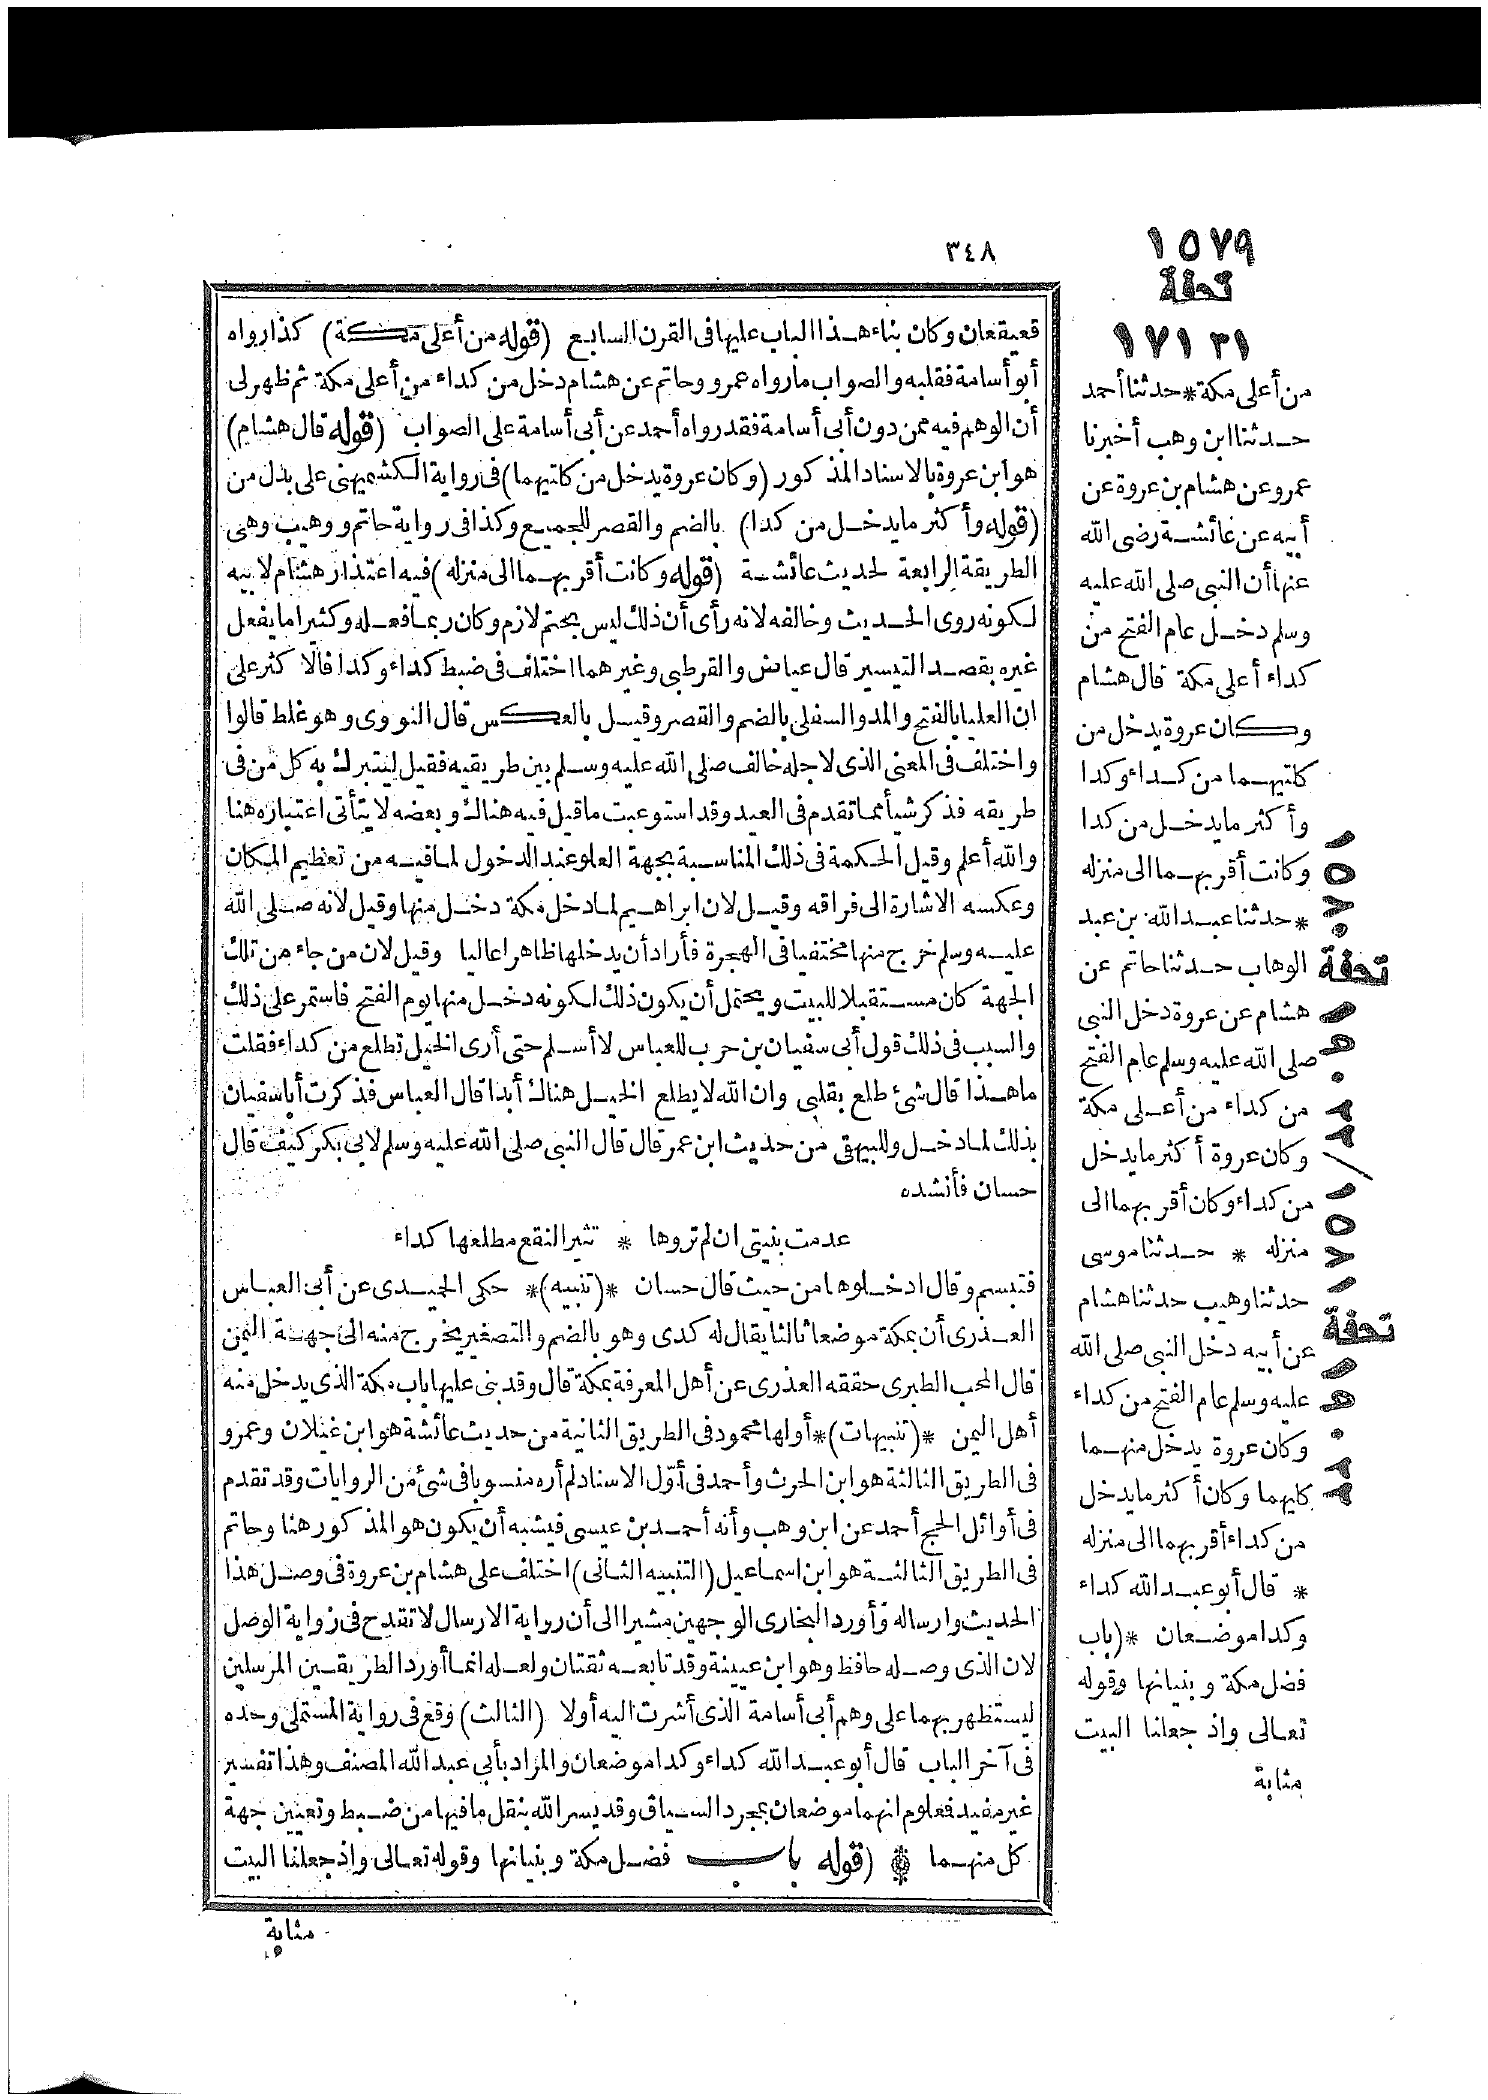 ٣٤٨
قعيقعان وكان بناء هذا الباب عليها فى القرن السابع (قوله من أعلى مكة) كذا رواه
أبو أسامة فقلبه والصواب ما رواه عمرو وحاتم عن هشام دخل من كداء من أعلى مكة ثم ظهر لى
أن الوهم فيه ممن دون أبى أسامة فقد رواه أحمد عن أبى أسامة على الصواب (قوله قال هشام)
هو ابن عروة بالاسناد المذكور (وكان عروة يدخل من كلتيهما) فى رواية الكشميهنى على بدل من
(قوله وأكثر ما يدخل من كدا) بالضم والقصر للجميع وكذا فى رواية حاتم ووهيب وهى
الطريقة الرابعة لحديث عائشة (قوله وكانت أقربهما الى منزله) فيه اعتذار هشام لابيه
لكونه روى الحديث وخالفه لانه رأى أن ذلك ليس بحتم لازم وكان ربما فعله وكثيرا ما يفعل
غيره بقصد التيسير قال عياض والقرطبى وغيرهما اختلف فى ضبط كداء وكدا فالاكثر على
ان العليا بالفتح والمد والسفلى بالضم والقصر وقيل بالعكس قال النووى وهو غلط قالوا
واختلف فى المعنى الذى لاجله خالف صلى الله عليه وسلم بين طريقيه فقيل ليتبرك به كل من فى
طريقه فذكر شيأ مما تقدم فى العيد وقد استوعبت ما قيل فيه هناك وبعضه لا يتأتى اعتباره هنا
والله أعلم وقيل الحكمة فى ذلك المناسبة بجهة العلو عند الدخول لما فيه من تعظيم المكان
وعكسه الاشارة الى فراقه وقيل لان ابراهيم لما دخل مكة دخل منها وقيل لانه صلى الله
عليه وسلم خرج منها مختفيا فى الهجرة فأراد أن يدخلها ظاهرا عاليا وقيل لان من جاء من تلك
الجهة كان مستقبلا للبيت ويحتمل أن يكون ذلك لكونه دخل منها يوم الفتح فاستمر على ذلك
والسبب فى ذلك قول أبى سفيان بن حرب للعباس لا أسلم حتى أرى الخيل تطلع من كداء فقلت
ما هذا قال شئ طلع بقلبى وان الله لا يطلع الخيل هناك أبدا قال العباس فذكرت أبا سفيان
بذلك لما دخل وللبيهقى من حديث ابن عمر قال قال النبى صلى الله عليه وسلم لابى بكر كيف قال
حسان فأنشده
عدمت بنيتى ان لم تروها * تثير النقع مطلعها كداء
فتبسم وقال ادخلوها من حيث قال حسان *(تنبيه)* حكى الحميدى عن أبى العباس
العذرى أن بمكة موضعا ثالثا يقال له كدى وهو بالضم والتصغير يخرج منه الى جهة اليمن
قال المحب الطبرى حققه العذرى عن أهل المعرفة بمكة قال وقد بنى عليها باب مكة الذى يدخل منه
أهل اليمن *(تنبيهات)* أولها محمود فى الطريق الثانية من حديث عائشة هو ابن غيلان وعمرو
فى الطريق الثالثة هو ابن الحرث وأحمد فى أول الاسناد لم أره منسوبا فى شئ من الروايات وقد تقدم
فى أوائل الحج أحمد عن ابن وهب وأنه أحمد بن عيسى فيشبه أن يكون هو المذكور هنا وحاتم
فى الطريق الثالثة هو ابن اسماعيل (التنبيه الثانى) اختلف على هشام بن عروة فى وصل هذا
الحديث وارساله وأورد البخارى الوجهين مشيرا الى أن رواية الارسال لا تقدح فى رواية الوصل
لان الذى وصله حافظ وهو ابن عيينة وقد تابعه ثقتان ولعله انما أورد الطريقين المرسلين
ليستظهر بهما على وهم أبى أسامة الذى أشرت اليه أولا (الثالث) وقع فى رواية المستملى وحده
فى آخر الباب قال أبو عبد الله كداء وكدا موضعان والمراد بأبى عبد الله المصنف وهذا تفسير
غير مفيد فمعلوم انهما موضعان بمجرد السياق وقد يسر الله بنقل ما فيها من ضبط وتعيين جهة
كل منهما (قوله باب فضل مكة وبنيانها وقوله تعالى واذ جعلنا البيت
مثابة
١٥٧٩
تحفة
١٧١٣١
من أعلى مكة * حدثنا أحمد
حدثنا ابن وهب أخبرنا
عمرو عن هشام بن عروة عن
أبيه عن عائشة رضى الله
عنها أن النبى صلى الله عليه
وسلم دخل عام الفتح من
كداء أعلى مكة قال هشام
وكان عروة يدخل من
كلتيهما من كداء وكدا
وأكثر ما يدخل من كدا
وكانت أقربهما الى منزله
* حدثنا عبد الله بن عبد
الوهاب حدثنا حاتم عن
هشام عن عروة دخل النبى
صلى الله عليه وسلم عام الفتح
من كداء من أعلى مكة
وكان عروة أكثر ما يدخل
من كداء وكان أقربهما الى
منزله * حدثنا موسى
حدثنا وهيب حدثنا هشام
عن أبيه دخل النبى صلى الله
عليه وسلم عام الفتح من كداء
وكان عروة يدخل منهما
كليهما وكان أكثر ما يدخل
من كداء أقربهما الى منزله
* قال أبو عبد الله كداء
وكدا موضعان *(باب
فضل مكة وبنيانها وقوله
تعالى واذ جعلنا البيت
مثابة
تحفة
تحفة